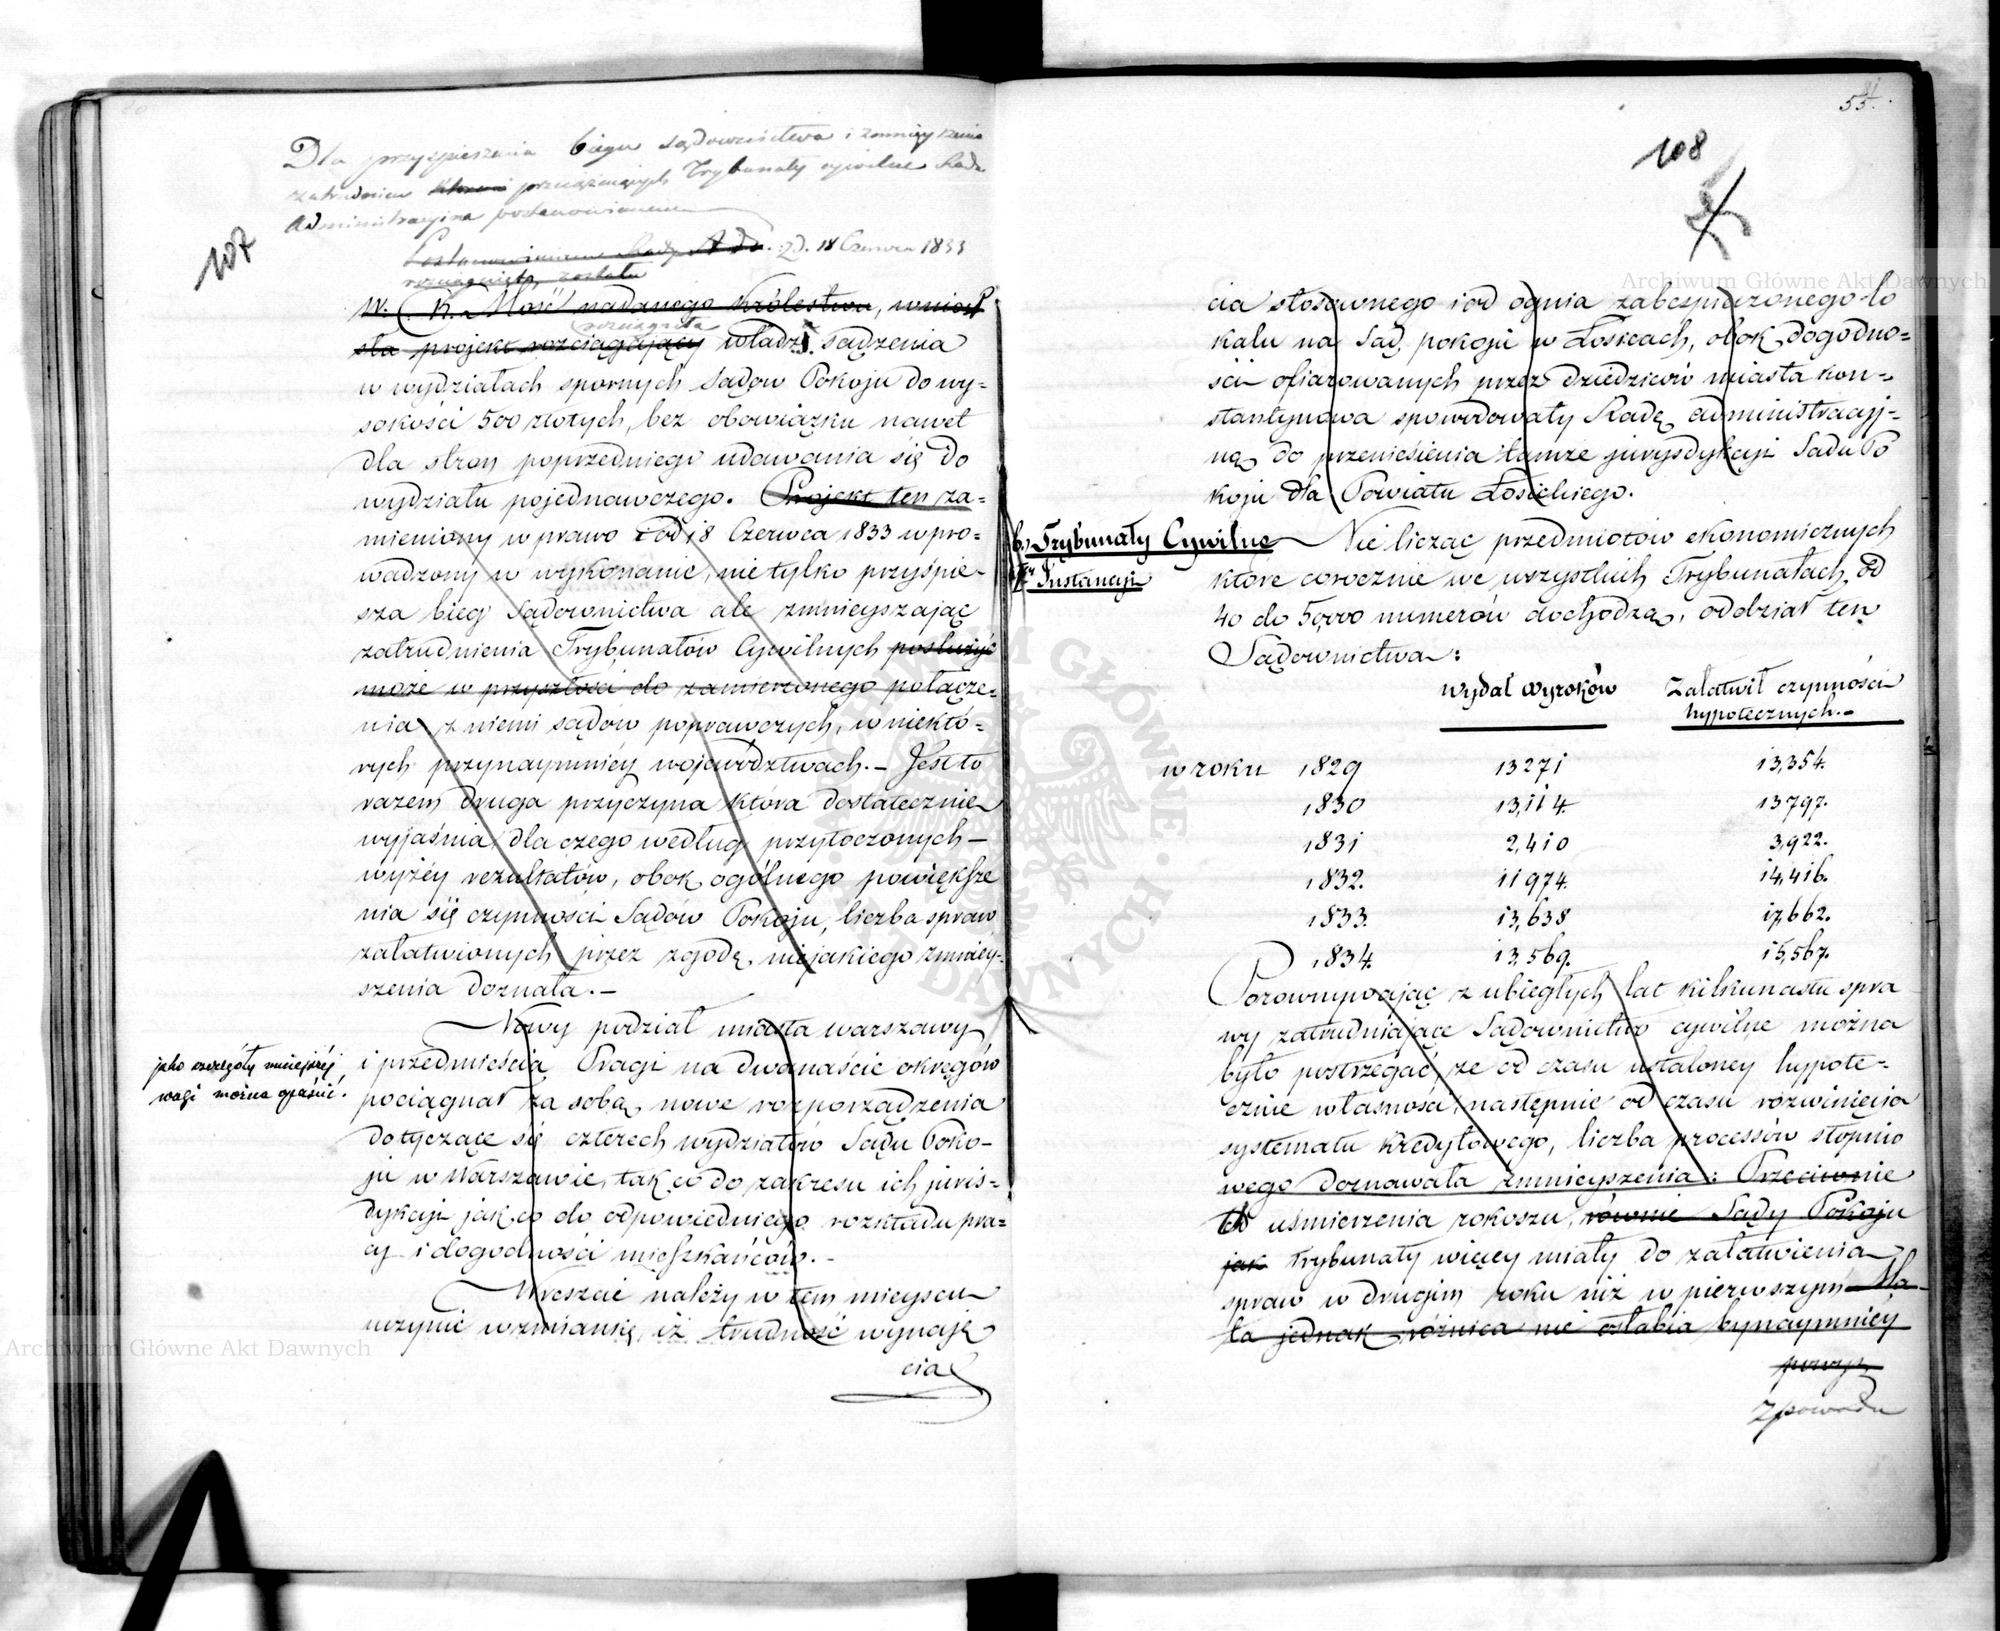 107
Dla przyspieszenia biegu sądownictwa i zmnieyszenia
zatrudnień przeciążaiących Trybunały cywilne Rada
Administracyina postanowieniem
Postanowieniem Rady Adm. z D. 18 Czerwca 1833
rozciągnięta została
W. C. K. Mość nadanego Królestwu, wniosł
sła projekt rozciągający rozciągnęła władzę sądzenia
w wydziałach spornych Sądów Pokoju do wy-
sokości 500 złotych, bez obowiązku nawet
dla stron poprzedniego udawania się do
wydziału pojednawczego. Projekt ten za-
mieniony w prawo i od 18 Czerwca 1833 wpro-
wadzony w wykonanie, nietylko przyśpie-
sza bieg Sądownictwa ale zmnieyszając
zatrudnienia Trybunałów Cywilnych posłużyć
może w przyszłości do zamierzonego połącze-
nia z niemi sądów poprawczych, w niektó-
rych przynaymniéy województwach. – Jest to
razem druga przyczyna która dostatecznie
wyjaśnia dla czego według przytoczonych –
wyżéy rezultatów, obok ogólnego powiększe
nia się czynności Sądów Pokoju, liczba spraw
załatwionych przez zgodę, niejakiego zmniéy-
szenia doznała. –
Nowy podział miasta warszawy
i przedmieścia Pragi na dwanaście okręgów
pociągnął za sobą nowe rozporządzenia
dotyczące się czterech wydziałów Sądu Poko-
ju w Warszawie, tak co do zakresu ich juris-
dykcji jak co do odpowiedniego rozkładu pra-
cy i dogodności mieszkańców. –
jako szczegóły mniejszéj
wagi można opuścić.
Wreszcie należy w tem mieyscu
uczynić wzmiankę, iż trudność wynaję
cia
55.
108
cia stosownego i od ognia zabezpieczonego lo
kalu na Sąd pokoju w Łosicach, obok dogodno-
ści ofiarowanych przez dziedziców miasta kon-
stantynowa spowodowały Radę administracyj-
ną do przeniesienia tamże jurysdykcji Sadu Po
koju dla Powiatu Łosickiego.
b, Trybunały Cywilne
Iej Instancji
Nie licząc przedmiotów ekonomicznych
które corocznie we wszystkich Trybunałach od
40 do 50,000 numerów dochodzą, oddział ten
Sądownictwa:
wydał wyroków Załatwił czynności
hypotecznych. –
w roku 1829 13271 13,354.
1830 13,114. 13797.
1831 2,410 3,922.
1832. 11974. 14,416.
1833. 13,638 17,662.
1834. 13,569. 15,567.
Porównywając z ubiegłych lat kilkunastu spra
wy zatrudniające Sądownictwo cywilne można
było postrzegać, że od czasu ustaloney hypote-
cznie własności, następnie od czasu rozwinięcia
systematu kredytowego, liczba processów stopnio
wego doznawała zmnieyszenia: Przeciwnie
uśmierzenia rokoszu, równie Sądy Pokoju
jak trybunały więcey miały do załatwienia
spraw w drugim roku niż w pierwszym Ma-
ła jednak różnica nie osłabia bynaymniéy
powyż
z powodu
Archiwum Główne Akt Dawnych
Archiwum Główne Akt Dawnych
ARCHIWUM GŁÓWNE AKT DAWNYCH